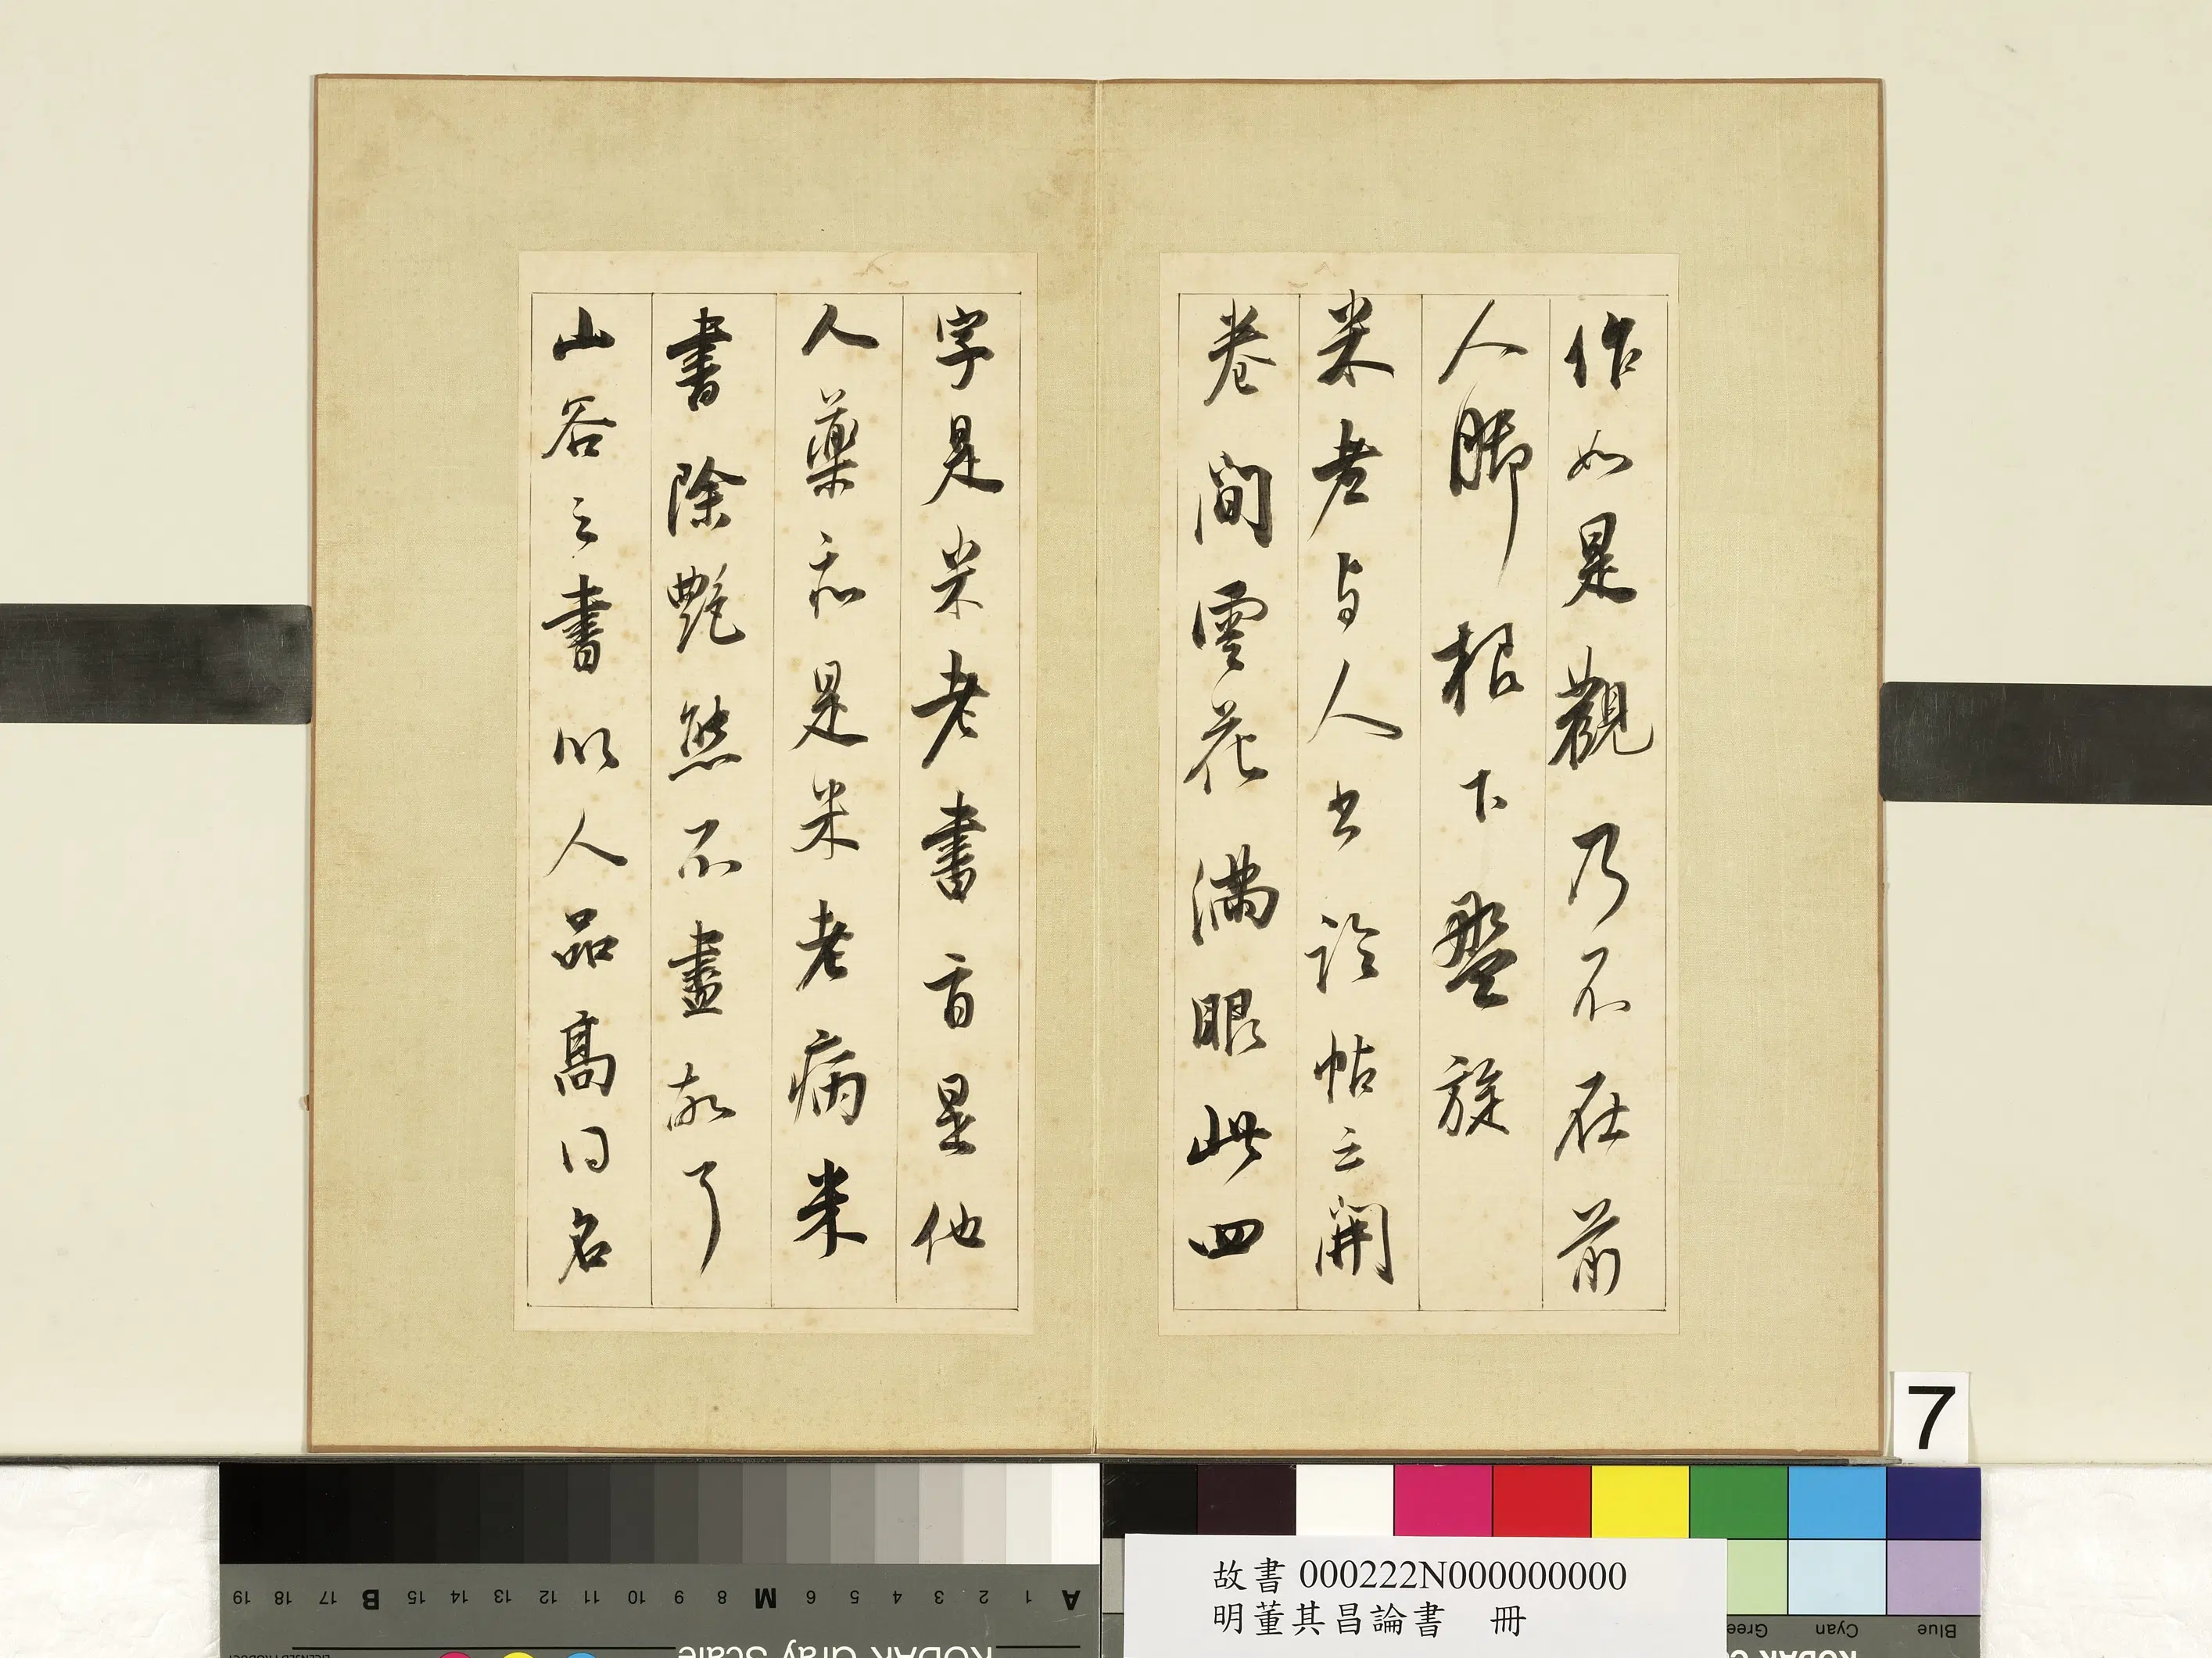 作如是觀乃不在前
人脚根下盤旋
米老与人論帖云開
卷間雲花滿眼此四
字是米老書盲是他
人藥亦是米老病米
書除艷態不盡故了
山谷之書以人品高同名
7
故書 000222N000000000
明董其昌論書 冊
A 1 2 3 4 5 6 M 8 9 10 11 12 13 14 15 B 17 18 19
KODAK Gray Scale
Cyan
Blue